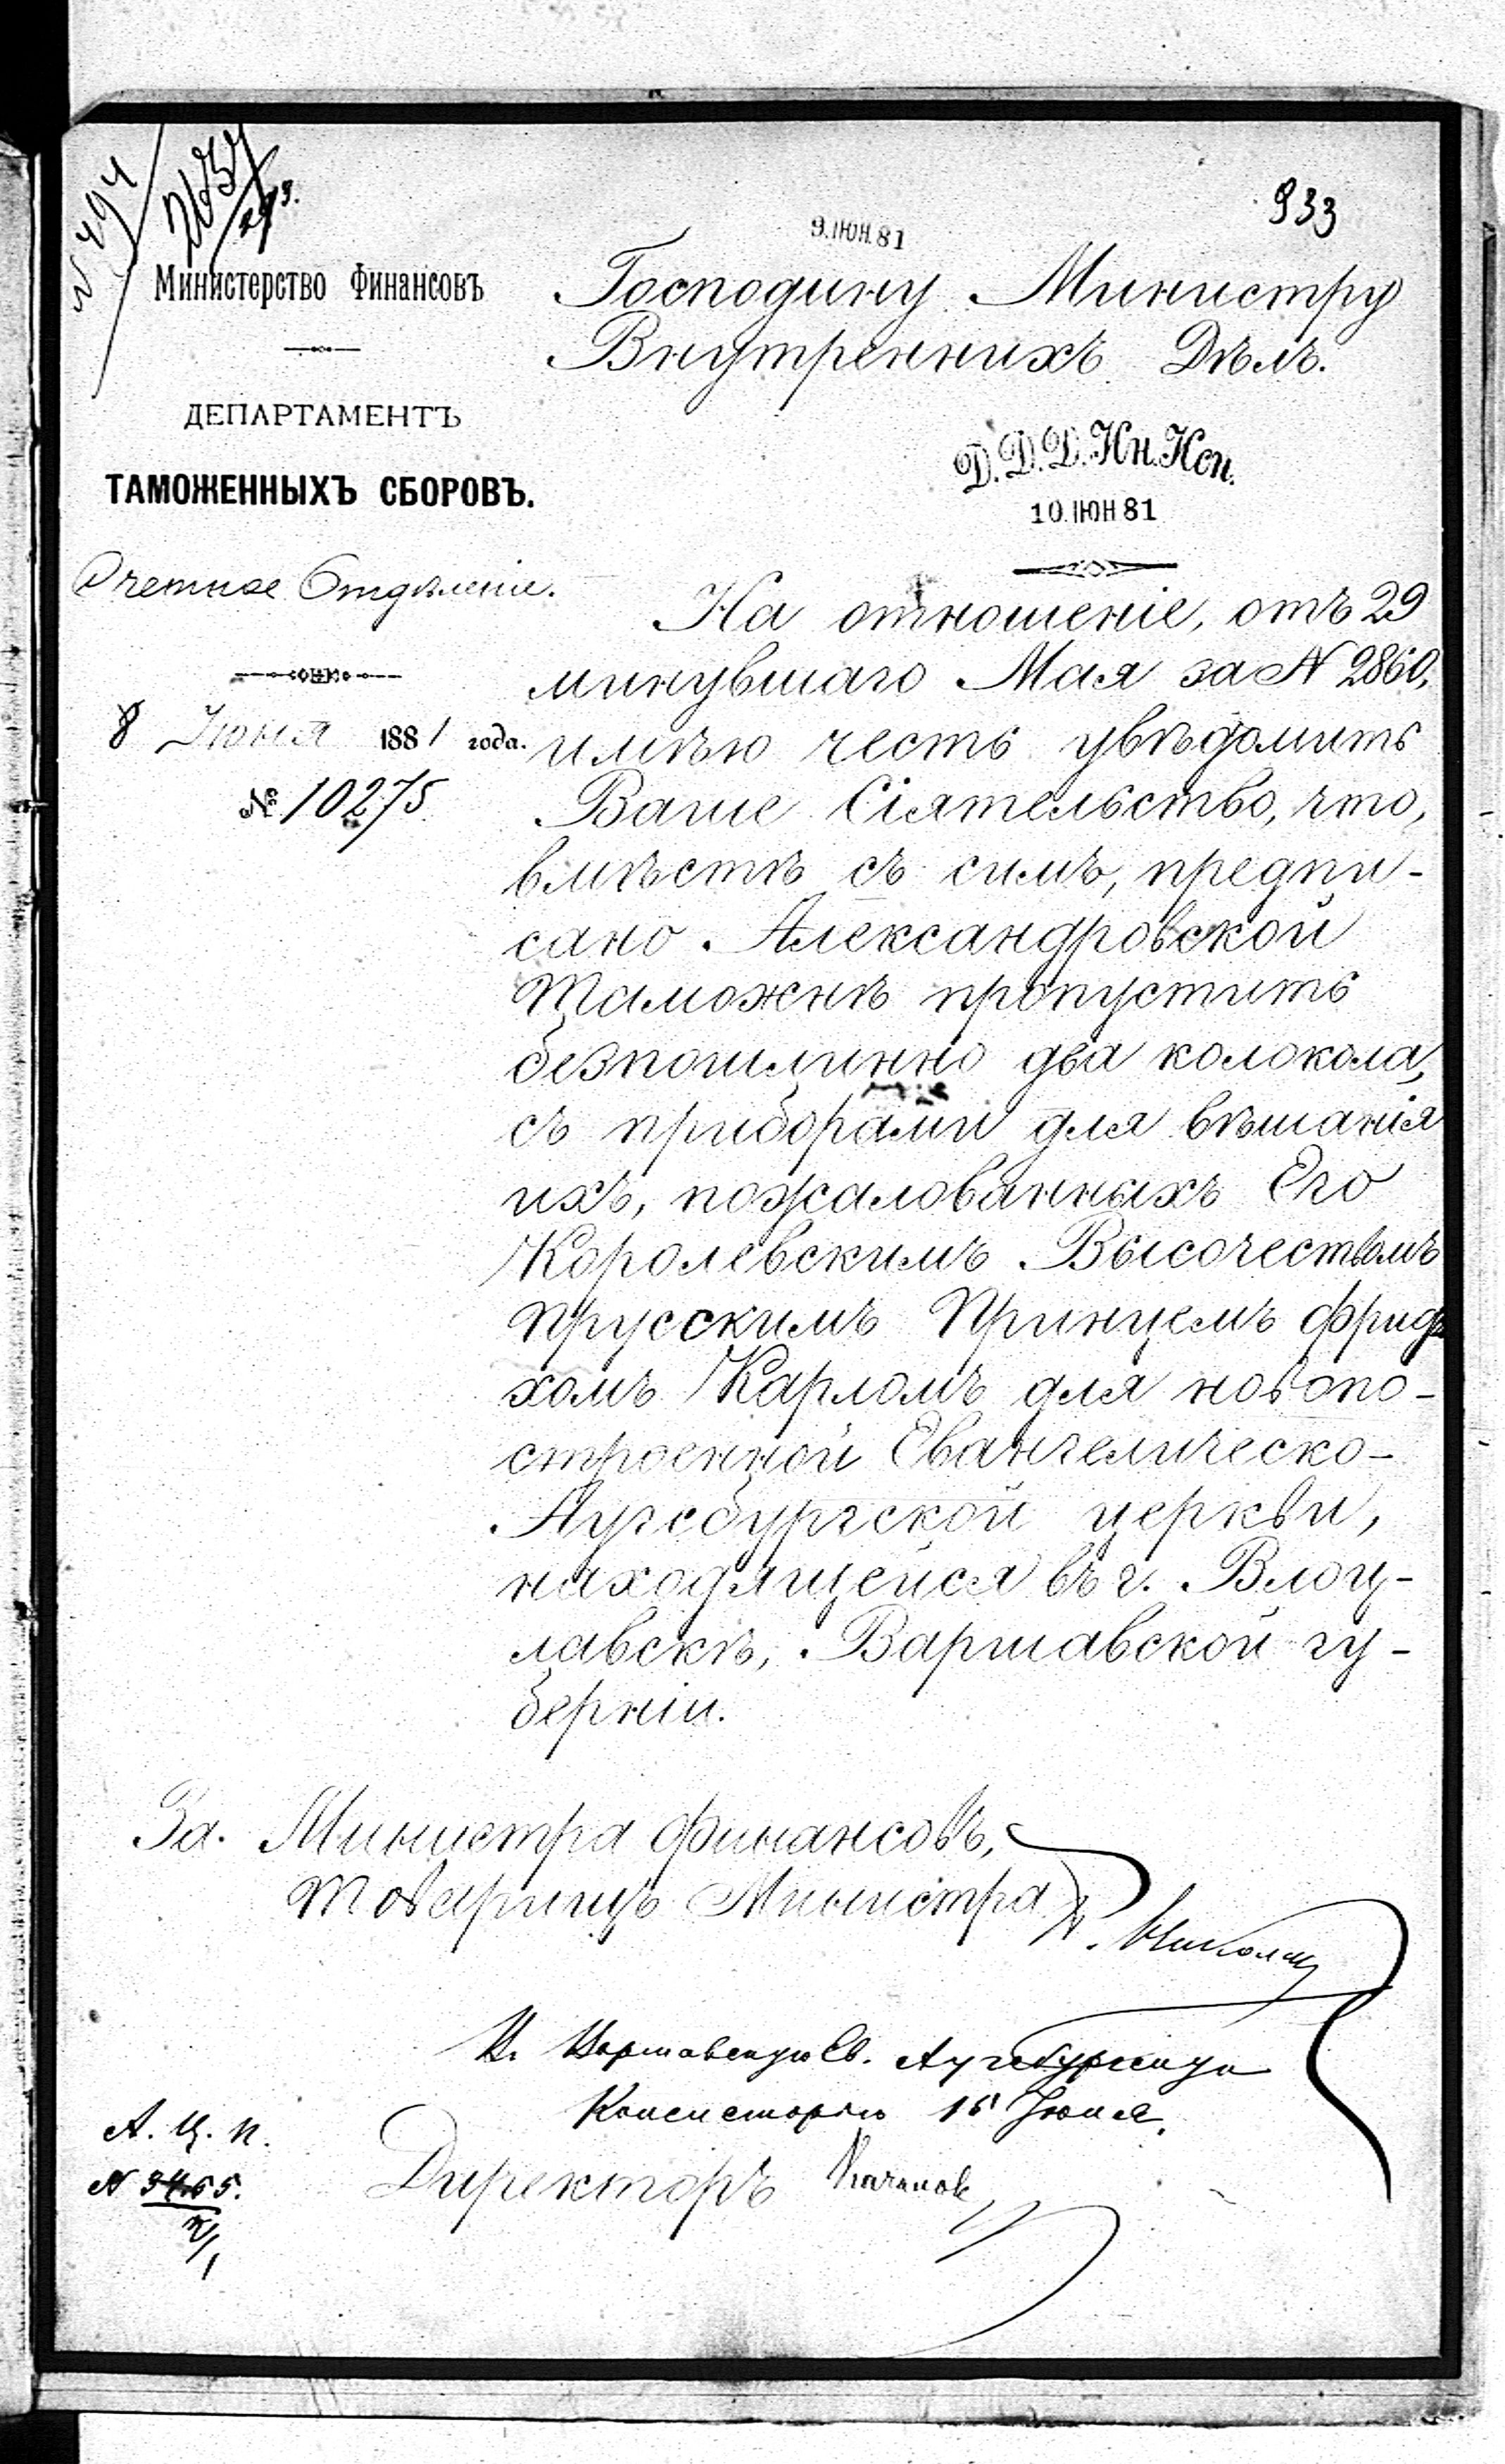 933
№ 494
9. ІЮН. 81
Министерство Финансовъ
ДЕПАРТАМЕНТЪ
ТАМОЖЕННЫХЪ СБОРОВЪ.
Счетное Отдѣленіе.
8 Іюня 1881 года.
№ 10275.
Господину Министру
Внутреннихъ Дѣлъ.
Д. Д. Д. Ин. Исп.
10. ІЮН 81
На отношеніе, отъ 29
минувшаго Мая за N 2860,
имѣю честь увѣдомить
Ваше Сіятельство, что,
вмѣстѣ съ симъ, предпи-
сано Александровской
Таможнѣ пропустить
безпошлинно два колокола,
съ приборами для вѣшанія
ихъ, пожалованныхъ Его
Королевскимъ Высочествомъ
Прусскимъ Принцемъ Фридри
хомъ Карломъ для новопо-
строенной Евангелическо-
Аугсбургской церкви,
находящейся въ г. Влоц-
лавскѣ, Варшавской гу-
берніи.
За Министра Финансовъ,
Товарищъ Министра Н.
В. Варшавскую Ев. Аугсбургскую
Консисторію 15 Іюня.
Директоръ Качалов
А. Ц. П.
N 3465.